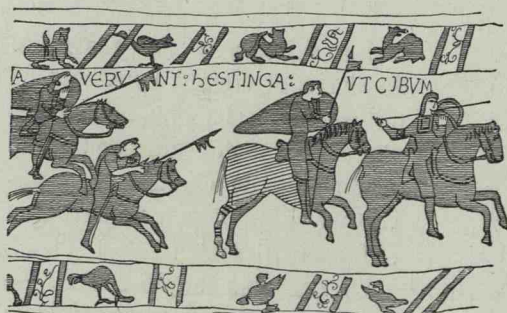 A VERVNT: hESTINGA: VTCIBVM